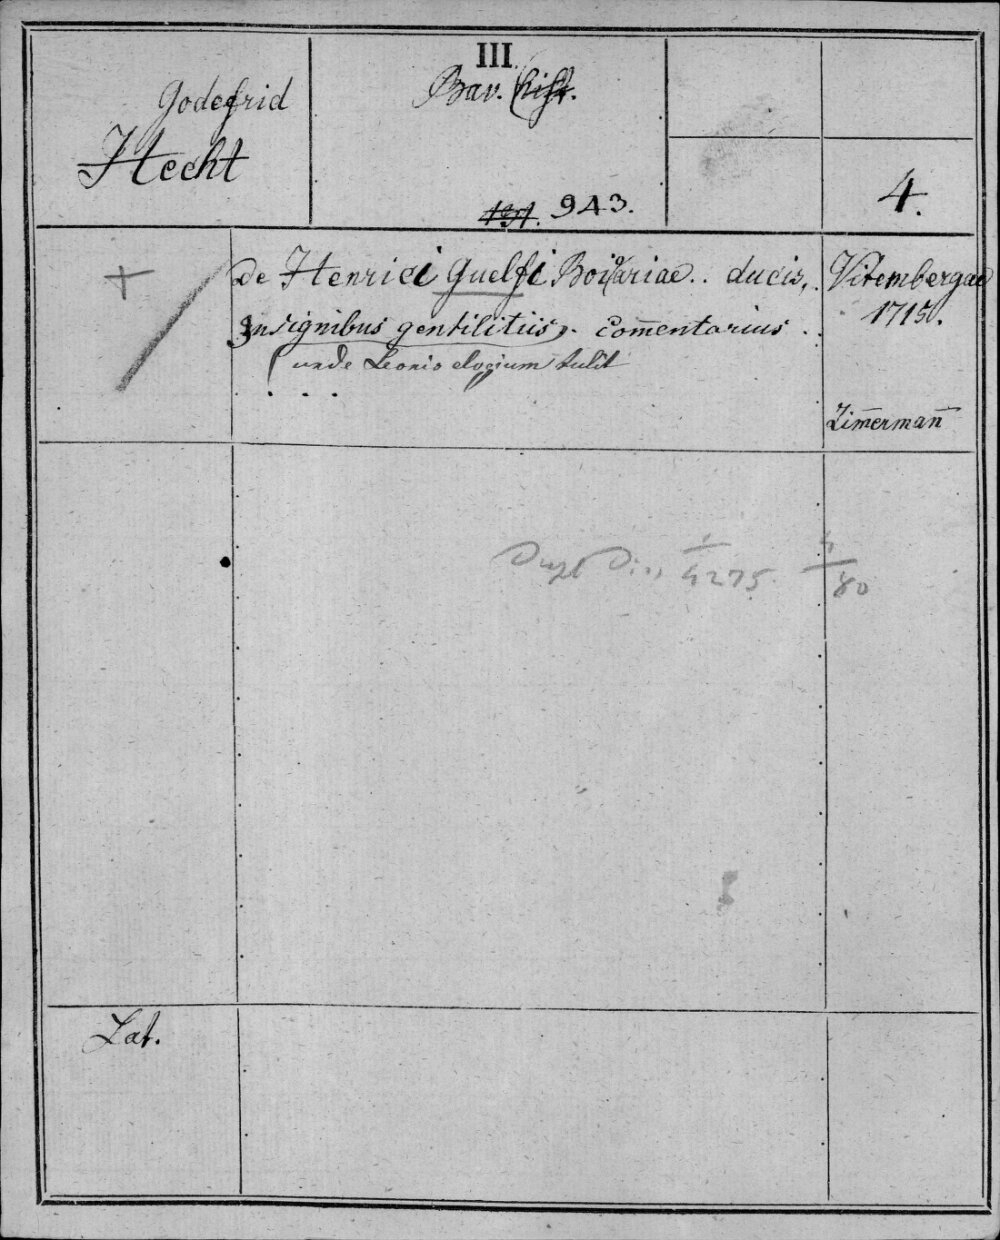 Godefrid
Hecht
III
Bav. hist.
943.
4.
de Henrici Guelfi Boioariae .. ducis,
Insignibus gentilitiis, comentarius ..
(unde Leonis elogium tulit
. . .
Vitembergae
1715.
Zim̄erman̄
4275. 4/80
Lat.